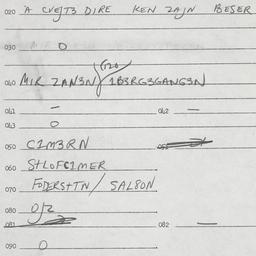 020 A CVEJT3 DIRE KEN ZAJN BESER
030 O
040 MIR ZAN3N/ 1B3RG3GANG3N
041 — 042 —
043 O
050 C1M3RN
060 StLOFC1MER
070 FODERSTTN/ SAL8ON
080 0/2
081 082 —
090 O